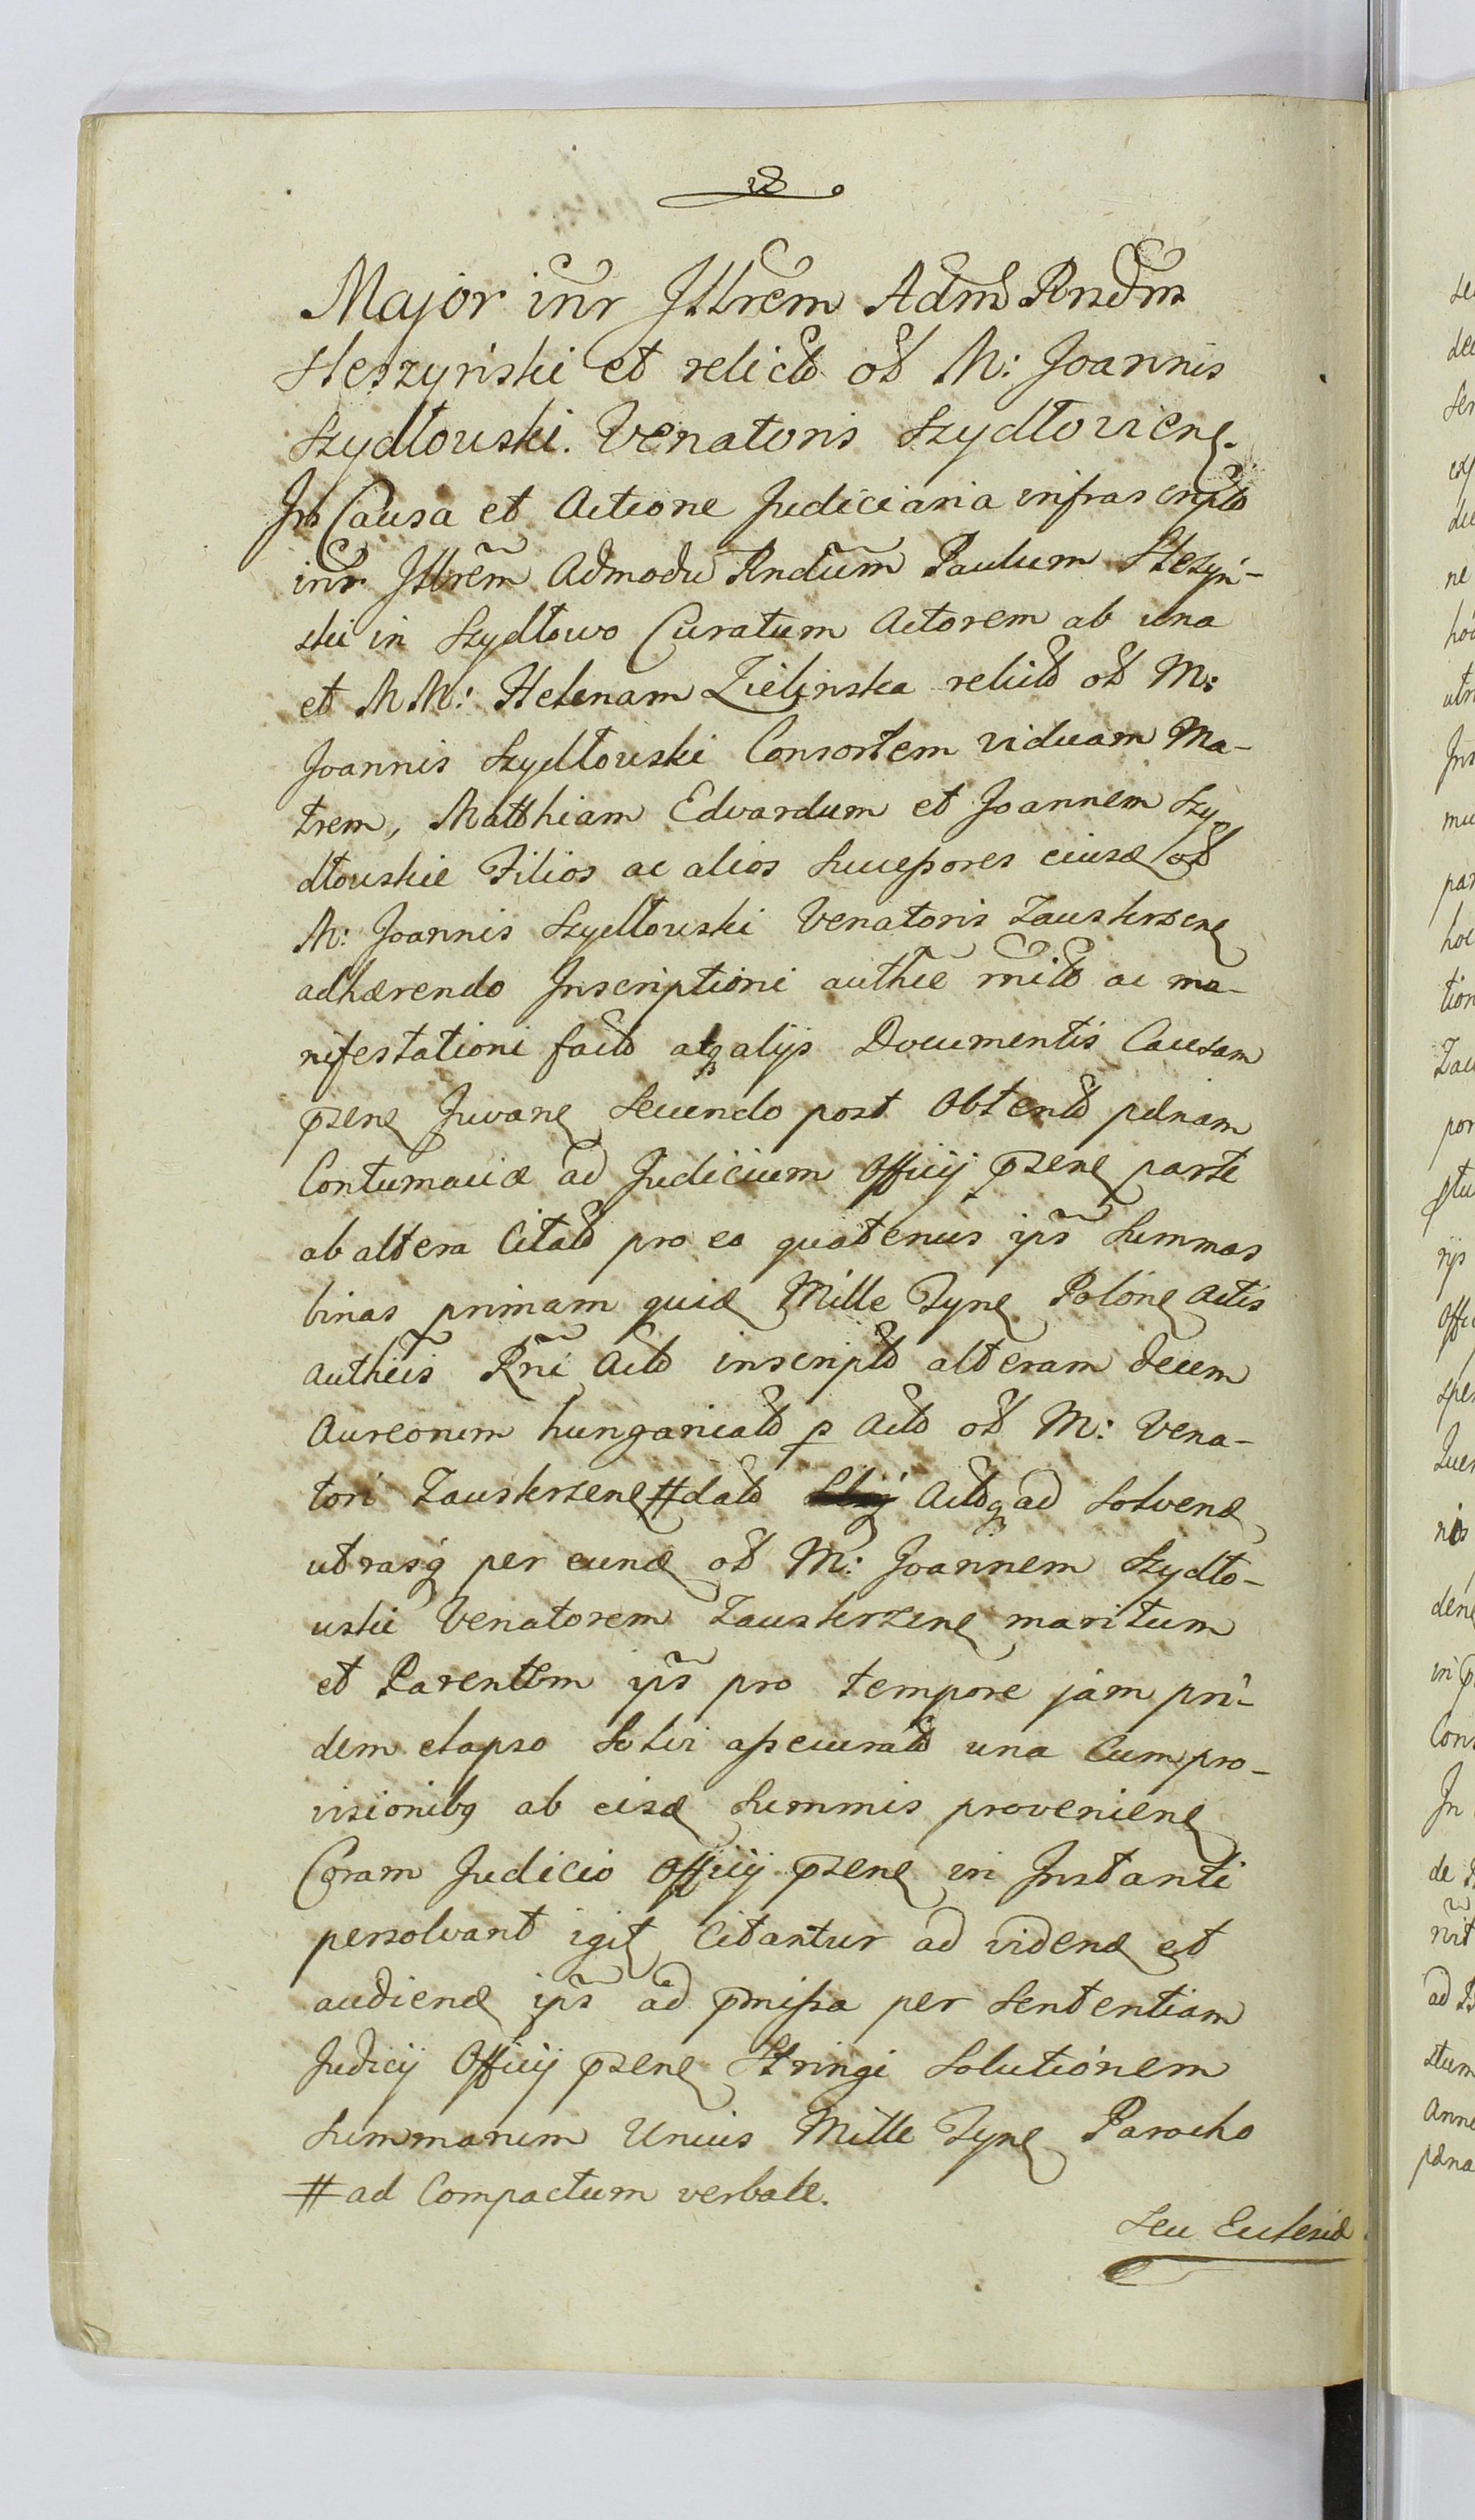 Major inr Jllrem Adm Rndm
Steszyński et relict ob M: Joannis
Szydłouski. Venatoris Szydłovien.
In Causa et Actione Judiciaria infrascript
inr Jllrem Admodu Rndum Paulum Steszyń-
ski in Szydłowo Curatum Actorem ab una
et MM: Helenam Zielinska relict ob M:
Joannis Szydłouski Consortem viduam Ma-
trem, Matthiam Edvardum et Joannem Szy
dłouskie Filios ac alios Sucessores eiusd ob
M: Joannis Szydłouski Venatoris Zauskrzen
adhærendo Inscriptioni authce rnit ac ma-
nifestationi fact atq alijs Documentis Causam
psen Juvan Secundo post Obtent pænam
Contumaciæ ad Judicium Officij psen parte
ab altera Citat pro eo quatenus ips Summas
binas primam quid Mille Tyn Polon Actis
authcis Rni Act inscript alteram decem
Aureorum hungaricat p Act ob M: Vena-
tori Zauskrzen # dat Actq ad Solvend
utrasq per eund ob M: Joannem Szydło-
uski Venatorem Zauskrzen maritum
et Parentem ips pro tempore jam pri-
dem elapso Solvi assecurat una Cum pro-
visionibq ab eisd Summis provenien
Coram Judicio Officij psen in Instanti
persolvant igit Citantur ad vidend et
audiend ips ad pmissa per Sententiam
Judicij Officij psen Stringi Solutionem
Summarum Unius Mille Tyn Parocho
# ad Compactum verbale.
Seu Eclesiæ